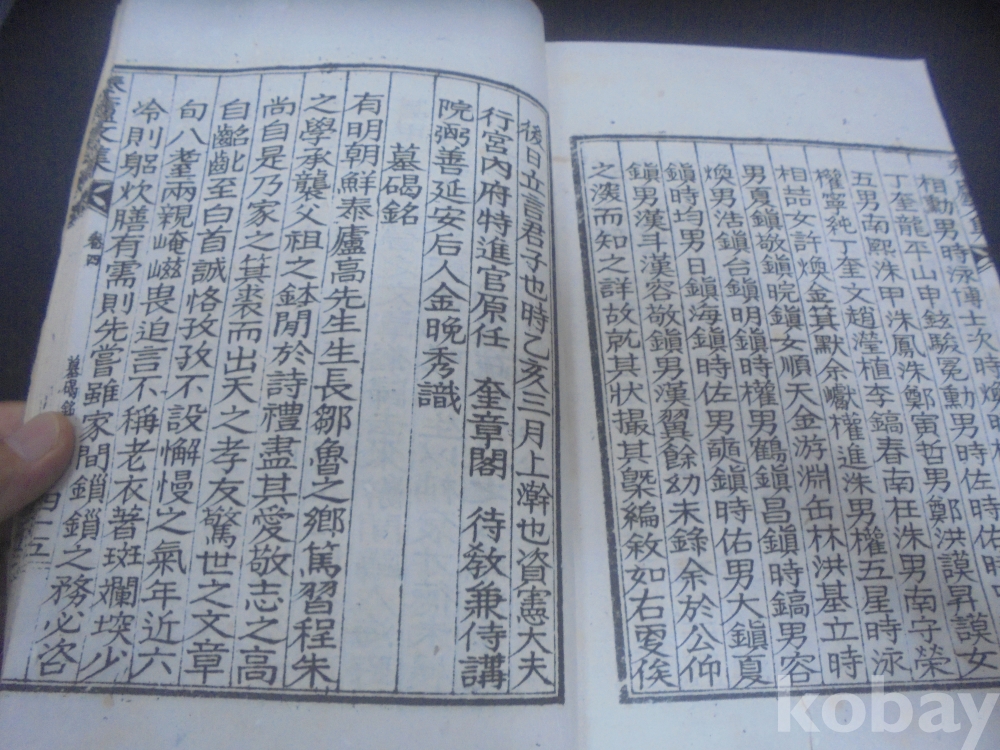 相勳男時泳博士次時煥時
丁奎龍平山申鉉駿冕勳男時佐時
五男南熙洙甲洙鳳洙鄭寅哲男鄭洪謨昇謨女
權寧純丁奎文趙瀅植李鎬春南在洙男南守榮
相喆女許煥金箕默余巘權進洙男權五星時泳
男夏鎭敬鎭晥鎭女順天金游淵缶林洪基立時
煥男浩鎭台鎭明鎭時權男鶴鎭昌鎭時鎬男容
鎭時均男日鎭海鎭時佐男奭鎭時佑男大鎭夏
鎭男漢斗漢容敬鎭男漢翼餘幼未錄余於公仰
之溲而知之詳故就其狀撮其槩編敘如右更俟
後日立言君子也時乙亥三月上澣也資憲大夫
行宮內府特進官原任 奎章閣 待敎兼侍講
院弼善延安后人金晩秀識
墓碣銘
有明朝鮮泰廬高先生生長鄒魯之鄉篤習程朱
之學承襲父祖之鉢閒於詩禮盡其愛敬志之高
尚自是乃家之箕裘而出天之孝友驚世之文章
自齠齔齒至白首誠恪孜孜不設懈慢之氣年近六
旬八耋兩親崦嵫畏迫言不稱老衣著斑斕堗少
冷則躬炊膳有需則先嘗雖家間鎖鎖之務必咨
文集
卷四
墓碣銘
四十五
kobay